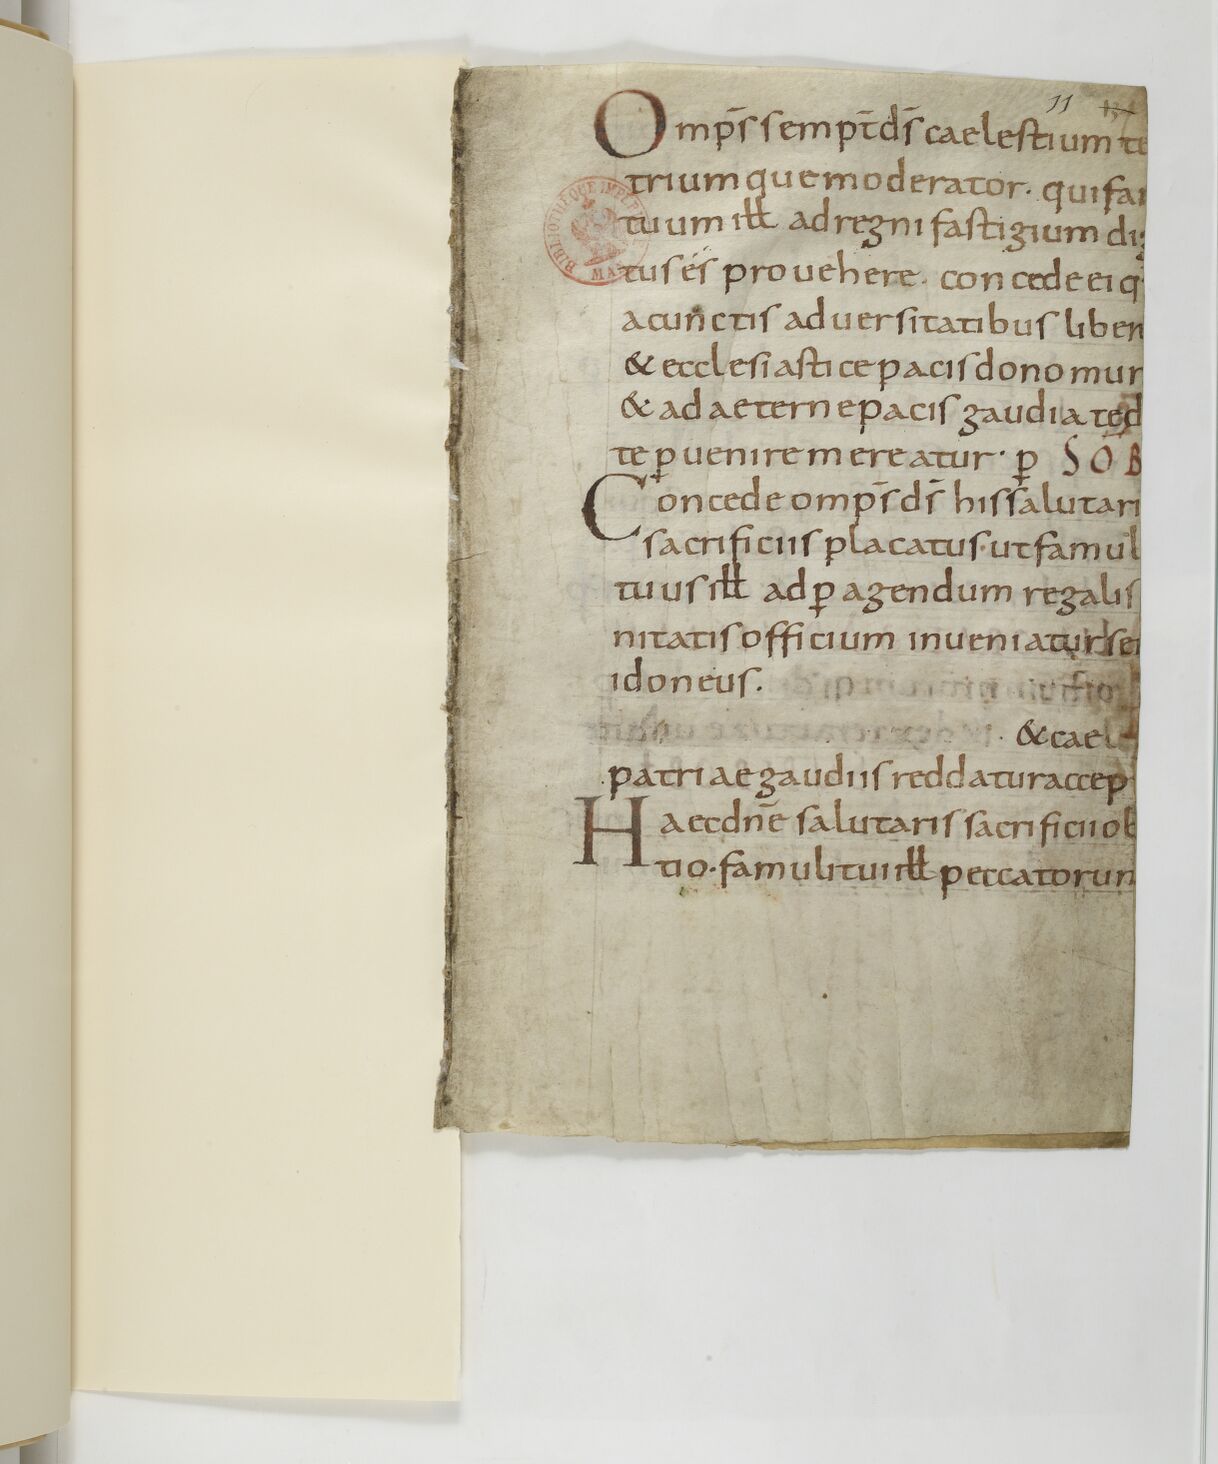 11
Omp̄s semp̄t d̄s caelestium te
triumque moderator. qui fa
tuum ill ad regni fastigium dig
tus es̄ provehere. concede ei q
a cunctis adversitatibus liber
& ecclesiastice pacis dono mun
& ad aeterne pacis gaudia te d
te ꝑvenire mereatur. ꝑ SOB
Concede omp̄s d̄s his salutari
sacrificiis placatus. ut famul
tuus ill ad ꝑagendum regalis
nitatis officium inveniatur se
idoneus.
& cael
patriae gaudiis reddatur accep
Haec dn̄e salutaris sacrificii ob
tio. famuli tui ill peccatorum
BIBLIOTHÈQUE IMPÉRIALE MAN